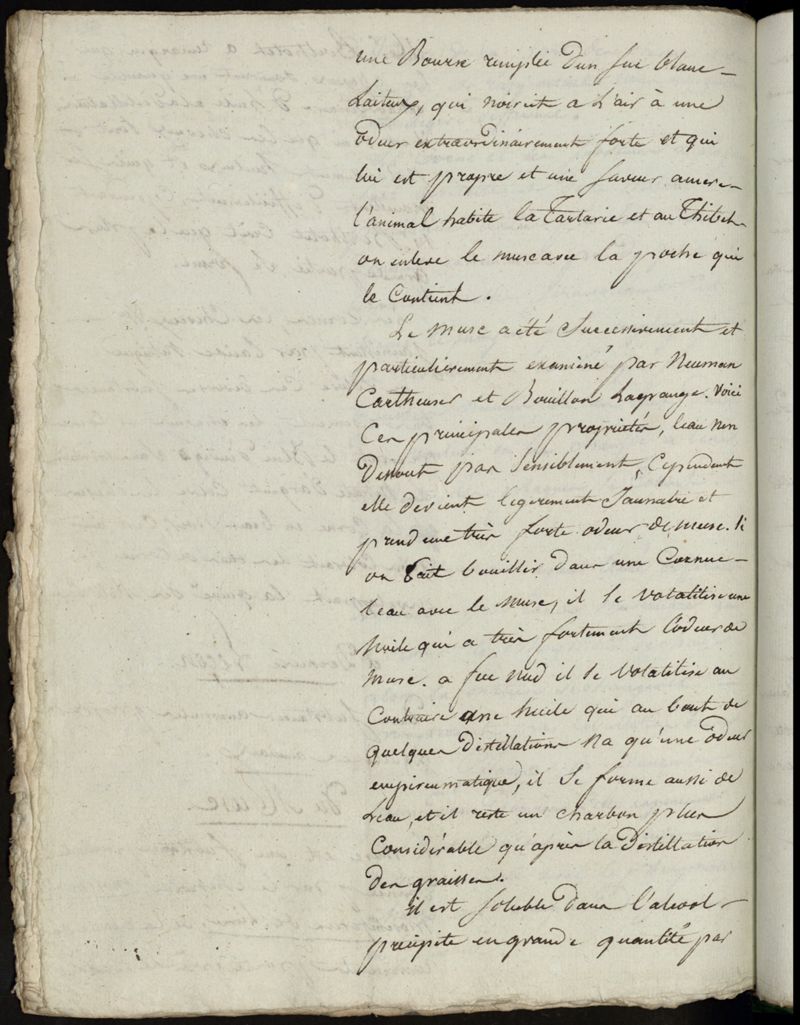 une Bourse remplie d'un suc blanc
Laiteux, qui noircit a L'air à une
odeur extraordinairement forte et qui
lui est propre et une saveur amere
l'animal habite la Tartarie et au Thibet
on enleve le musc avec la poche qui
le Contient.
Le musc a été Successivement et
particulierement examiné par Neuman
Cartheuser et Bouillon Lagrange. voici
Ces principales proprietés, leau nen
Dissout pas sensiblement, Cependant
elle devient legerement Jaunatre et
prend une très forte odeur de musc. Si
on fait bouillir dans une Cornue
leau avec le musc, il se volatilise une
huile qui a très fortement L'odeur de
musc. a feu nud il se volatilise au
Contraire une huile qui au bout de
quelques distillations na qu'une odeur
empireumatique, il se forme aussi de
Leau, et il reste un charbon plus
Considérable qu'après la Distillation
des graisses.
il est soluble dans l'alcool
precipité en grande quantité par